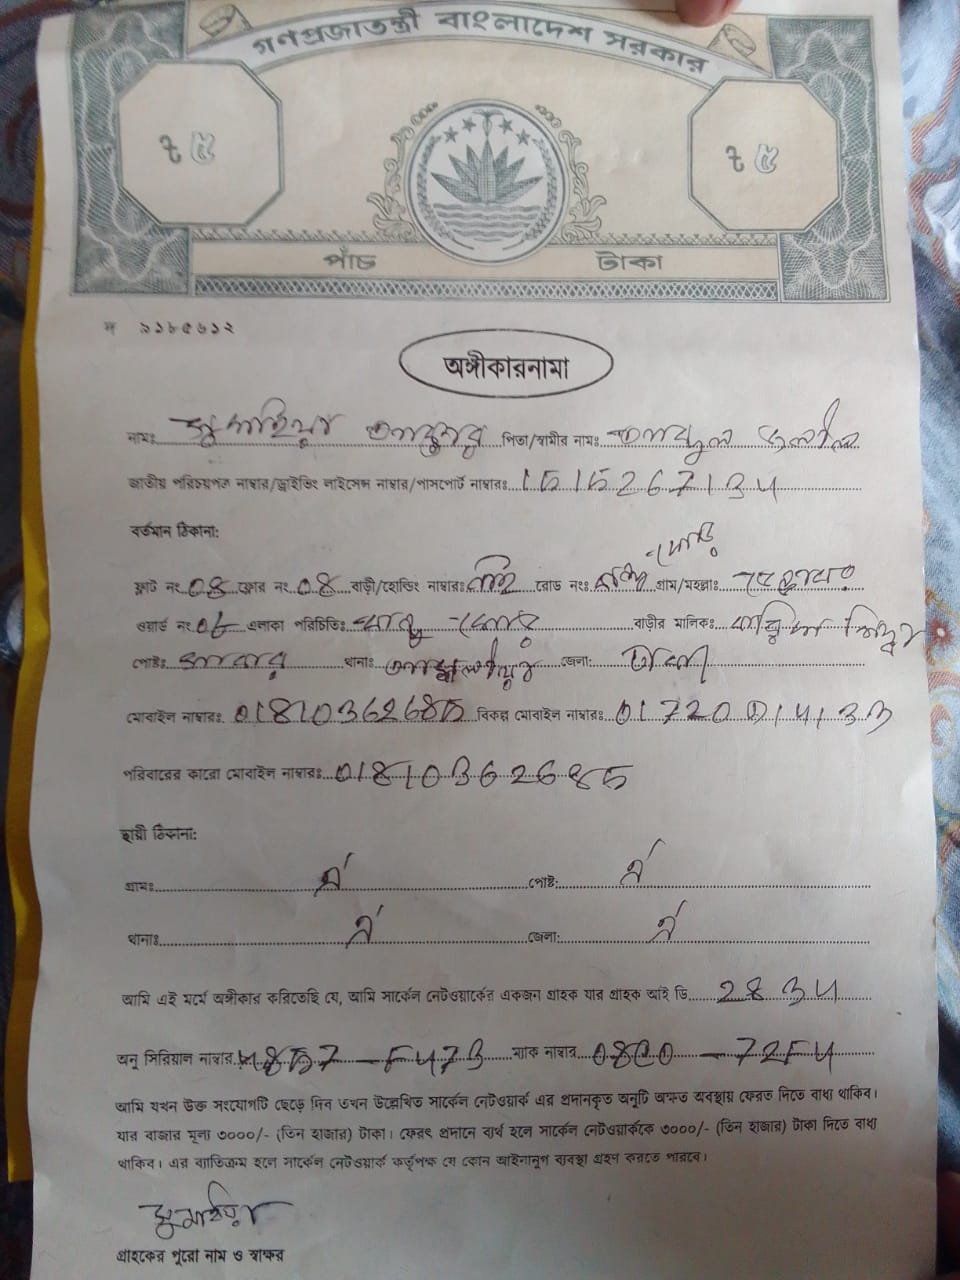 গণপ্রজাতন্ত্রী বাংলাদেশ সরকার
৳ ৫ ৳ ৫
পাঁচ টাকা
ন ৯১৮৫৬১২
অঙ্গীকারনামা
নামঃ সুমাইয়া আক্তার পিতা/স্বামীর নামঃ আবদুল জলিল
জাতীয় পরিচয়পত্র নাম্বার/ড্রাইভিং লাইসেন্স নাম্বার/পাসপোর্ট নাম্বারঃ 1515267134
বর্তমান ঠিকানা:
ফ্লাট নং 04 ফ্লোর নং 04 বাড়ী/হোল্ডিং নাম্বারঃ রোড নংঃ গ্রাম/মহল্লাঃ
ওয়ার্ড নং এলাকা পরিচিতিঃ বাড়ীর মালিকঃ
পোষ্টঃ সাভার থানাঃ আশুলিয়া জেলা: ঢাকা
মোবাইল নাম্বারঃ 01810362685 বিকল্প মোবাইল নাম্বারঃ
পরিবারের কারো মোবাইল নাম্বারঃ 01810362685
স্থায়ী ঠিকানা:
গ্রামঃ ঐ পোষ্ট: ঐ
থানাঃ ঐ জেলা: ঐ
আমি এই মর্মে অঙ্গীকার করিতেছি যে, আমি সার্কেল নেটওয়ার্কের একজন গ্রাহক যার গ্রাহক আই ডি 2834
অনু সিরিয়াল নাম্বার ম্যাক নাম্বার
আমি যখন উক্ত সংযোগটি ছেড়ে দিব তখন উল্লেখিত সার্কেল নেটওয়ার্ক এর প্রদানকৃত অনুটি অক্ষত অবস্থায় ফেরত দিতে বাধ্য থাকিব।
যার বাজার মূল্য ৩০০০/- (তিন হাজার) টাকা। ফেরৎ প্রদানে ব্যর্থ হলে সার্কেল নেটওয়ার্ককে ৩০০০/- (তিন হাজার) টাকা দিতে বাধ্য
থাকিব। এর ব্যতিক্রম হলে সার্কেল নেটওয়ার্ক কর্তৃপক্ষ যে কোন আইনানুগ ব্যবস্থা গ্রহণ করতে পারবে।
সুমাইয়া
গ্রাহকের পুরো নাম ও স্বাক্ষর